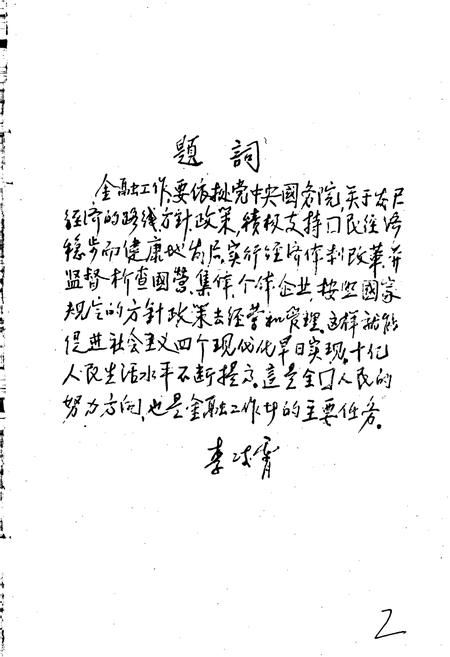 题 詞
金融工作,要依据党中央國务院,关于农民
经济的路线方針政策,積极支持口民经济
稳步而健康地发展,实行经济体制改革,并
监督检查國营、集体、个体企业,按照國家
规定的方針政策去经营和管理,这样就能
促进社会主义四个现代化早日实现,十亿
人民生活水平不断提高,這是全口人民的
努力方向,也是金融工作中的主要任务。
李
2